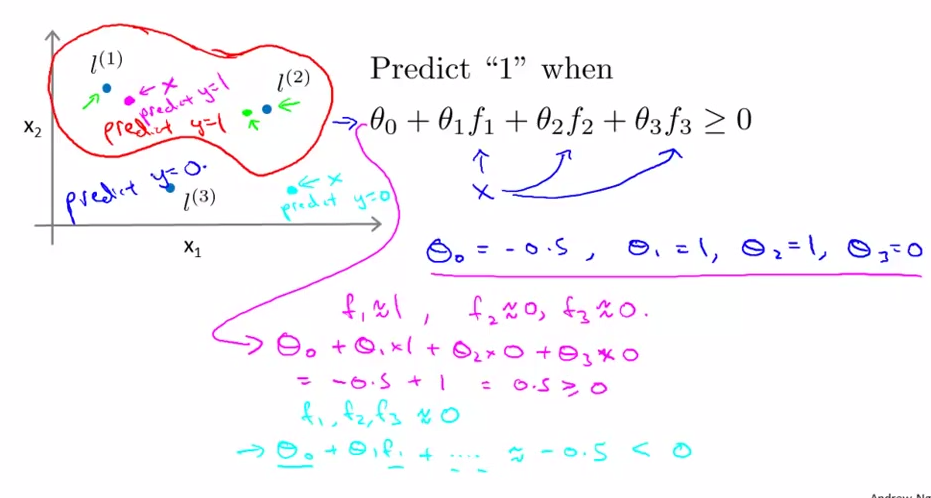 l^(1)
← x
predict y=1
l^(2)
predict y=1
x₂
predict y=0.
l^(3)
← x
predict y=0
x₁
Predict “1” when
→ θ₀ + θ₁f₁ + θ₂f₂ + θ₃f₃ ≥ 0
x
θ₀ = -0.5, θ₁ = 1, θ₂ = 1, θ₃ = 0
f₁ ≈ 1, f₂ ≈ 0, f₃ ≈ 0.
→ θ₀ + θ₁×1 + θ₂×0 + θ₃×0
= -0.5 + 1 = 0.5 ≥ 0
f₁, f₂, f₃ ≈ 0
→ θ₀ + θ₁f₁ + .... ≈ -0.5 < 0